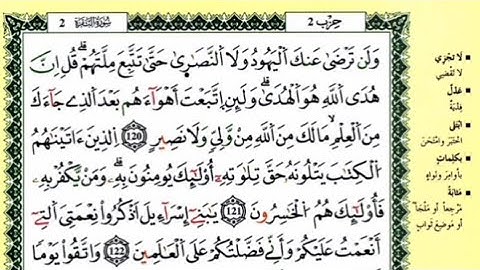 حِزْب 2
سُورَةُ الْبَقَرَة 2
وَلَن تَرْضَىٰ عَنكَ اَ۬لْيَهُودُ وَلَا اَ۬لنَّصَٰرَىٰ حَتَّىٰ تَتَّبِعَ مِلَّتَهُمْۖ قُلِ اِنَّ
هُدَى اَ۬للَّهِ هُوَ اَ۬لْهُدَىٰۖ وَلَئِنِ اِ۪تَّبَعْتَ أَهْوَآءَهُم بَعْدَ اَ۬لذِے جَآءَكَ
مِنَ اَ۬لْعِلْمِ مَا لَكَ مِنَ اَ۬للَّهِ مِنْ وَّلِيّٖ وَلَا نَصِيرٍ 120 اِ۬لذِينَ ءَاتَيْنَٰهُمُ
اُ۬لْكِتَٰبَ يَتْلُونَهُۥ حَقَّ تِلَاوَتِهِۦٓ أُوْلَٰٓئِكَ يُومِنُونَ بِهِۦۖ وَمَنْ يَّكْفُرْ بِهِۦ
فَأُوْلَٰٓئِكَ هُمُ اُ۬لْخَٰسِرُونَ 121 يَٰبَنِےٓ إِسْرَآءِيلَ اَ۟ذْكُرُواْ نِعْمَتِيَ اَ۬لتِےٓ
أَنْعَمْتُ عَلَيْكُمْ وَأَنِّے فَضَّلْتُكُمْ عَلَى اَ۬لْعَٰلَمِينَ 122 وَاتَّقُواْ يَوْماً
لَا تَجْزِي
لا تَقْضِي
عَدْلٌ
فِدْيَةٌ
ابْتَلَى
اخْتَبَرَ وامْتَحَنَ
بِكَلِمَاتٍ
بأوامِرَ ونَواهٍ
مَثَابَةً
مَرْجِعاً أو مَلْجَأً
أو مَوْضِعَ ثَوابٍ